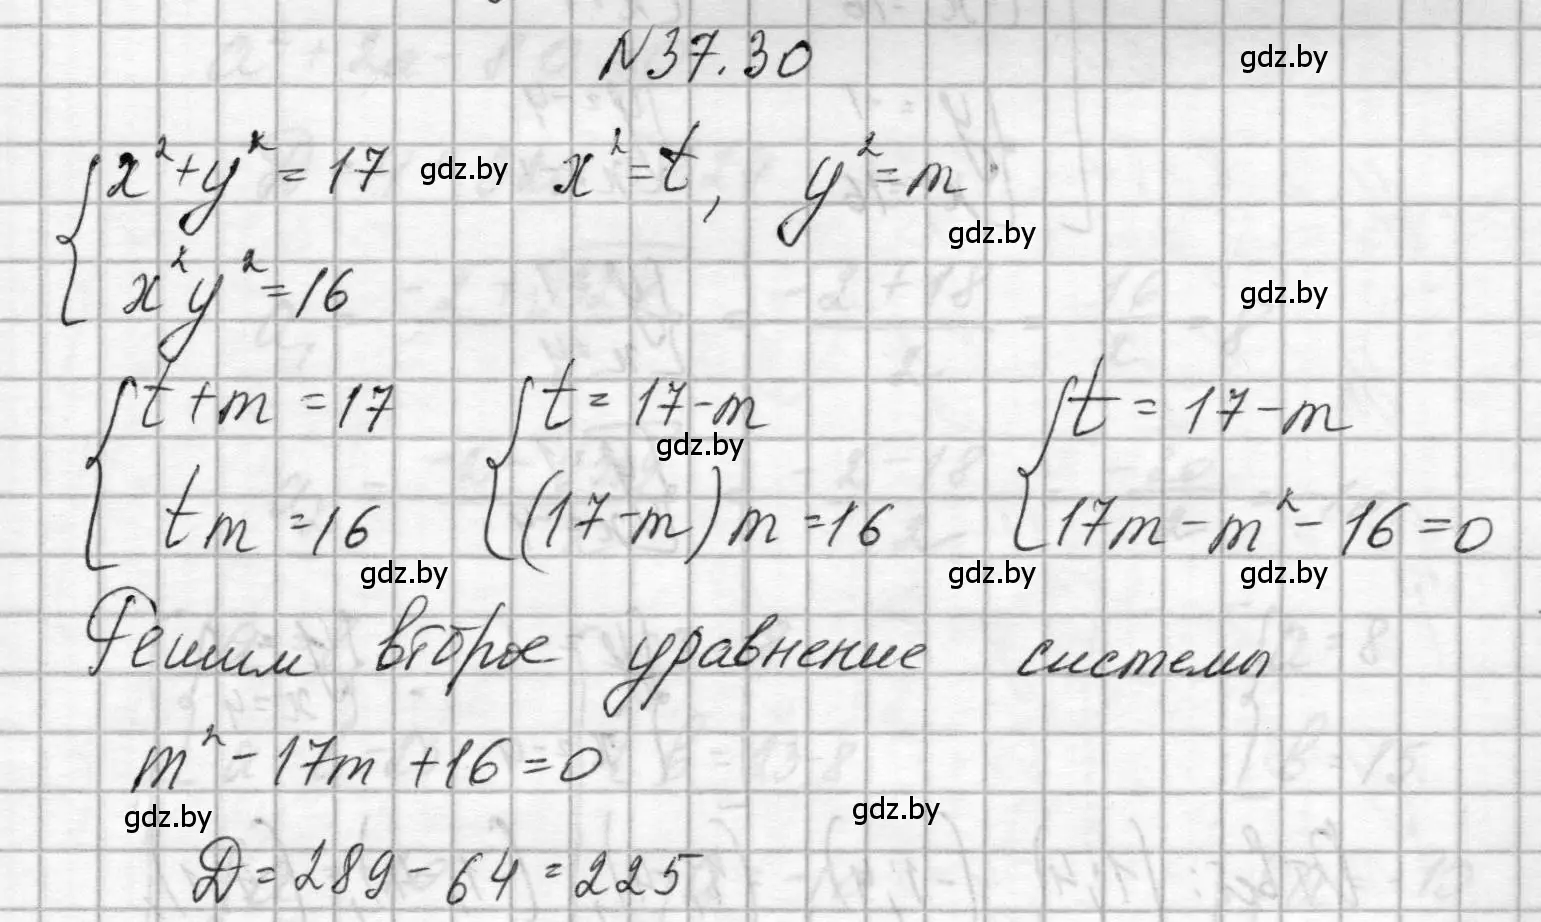 N37.30 gdz.by
x²+y²=17 gdz.by x²=t, y²=m
gdz.by
x²y²=16 gdz.by
t+m=17 t=17-m t=17-m
gdz.by
tm=16 (17-m)m=16 17m-m²-16=0
gdz.by gdz.by gdz.by
Решим второе уравнение системы
m²-17m+16=0
gdz.by gdz.by
Д=289-64=225